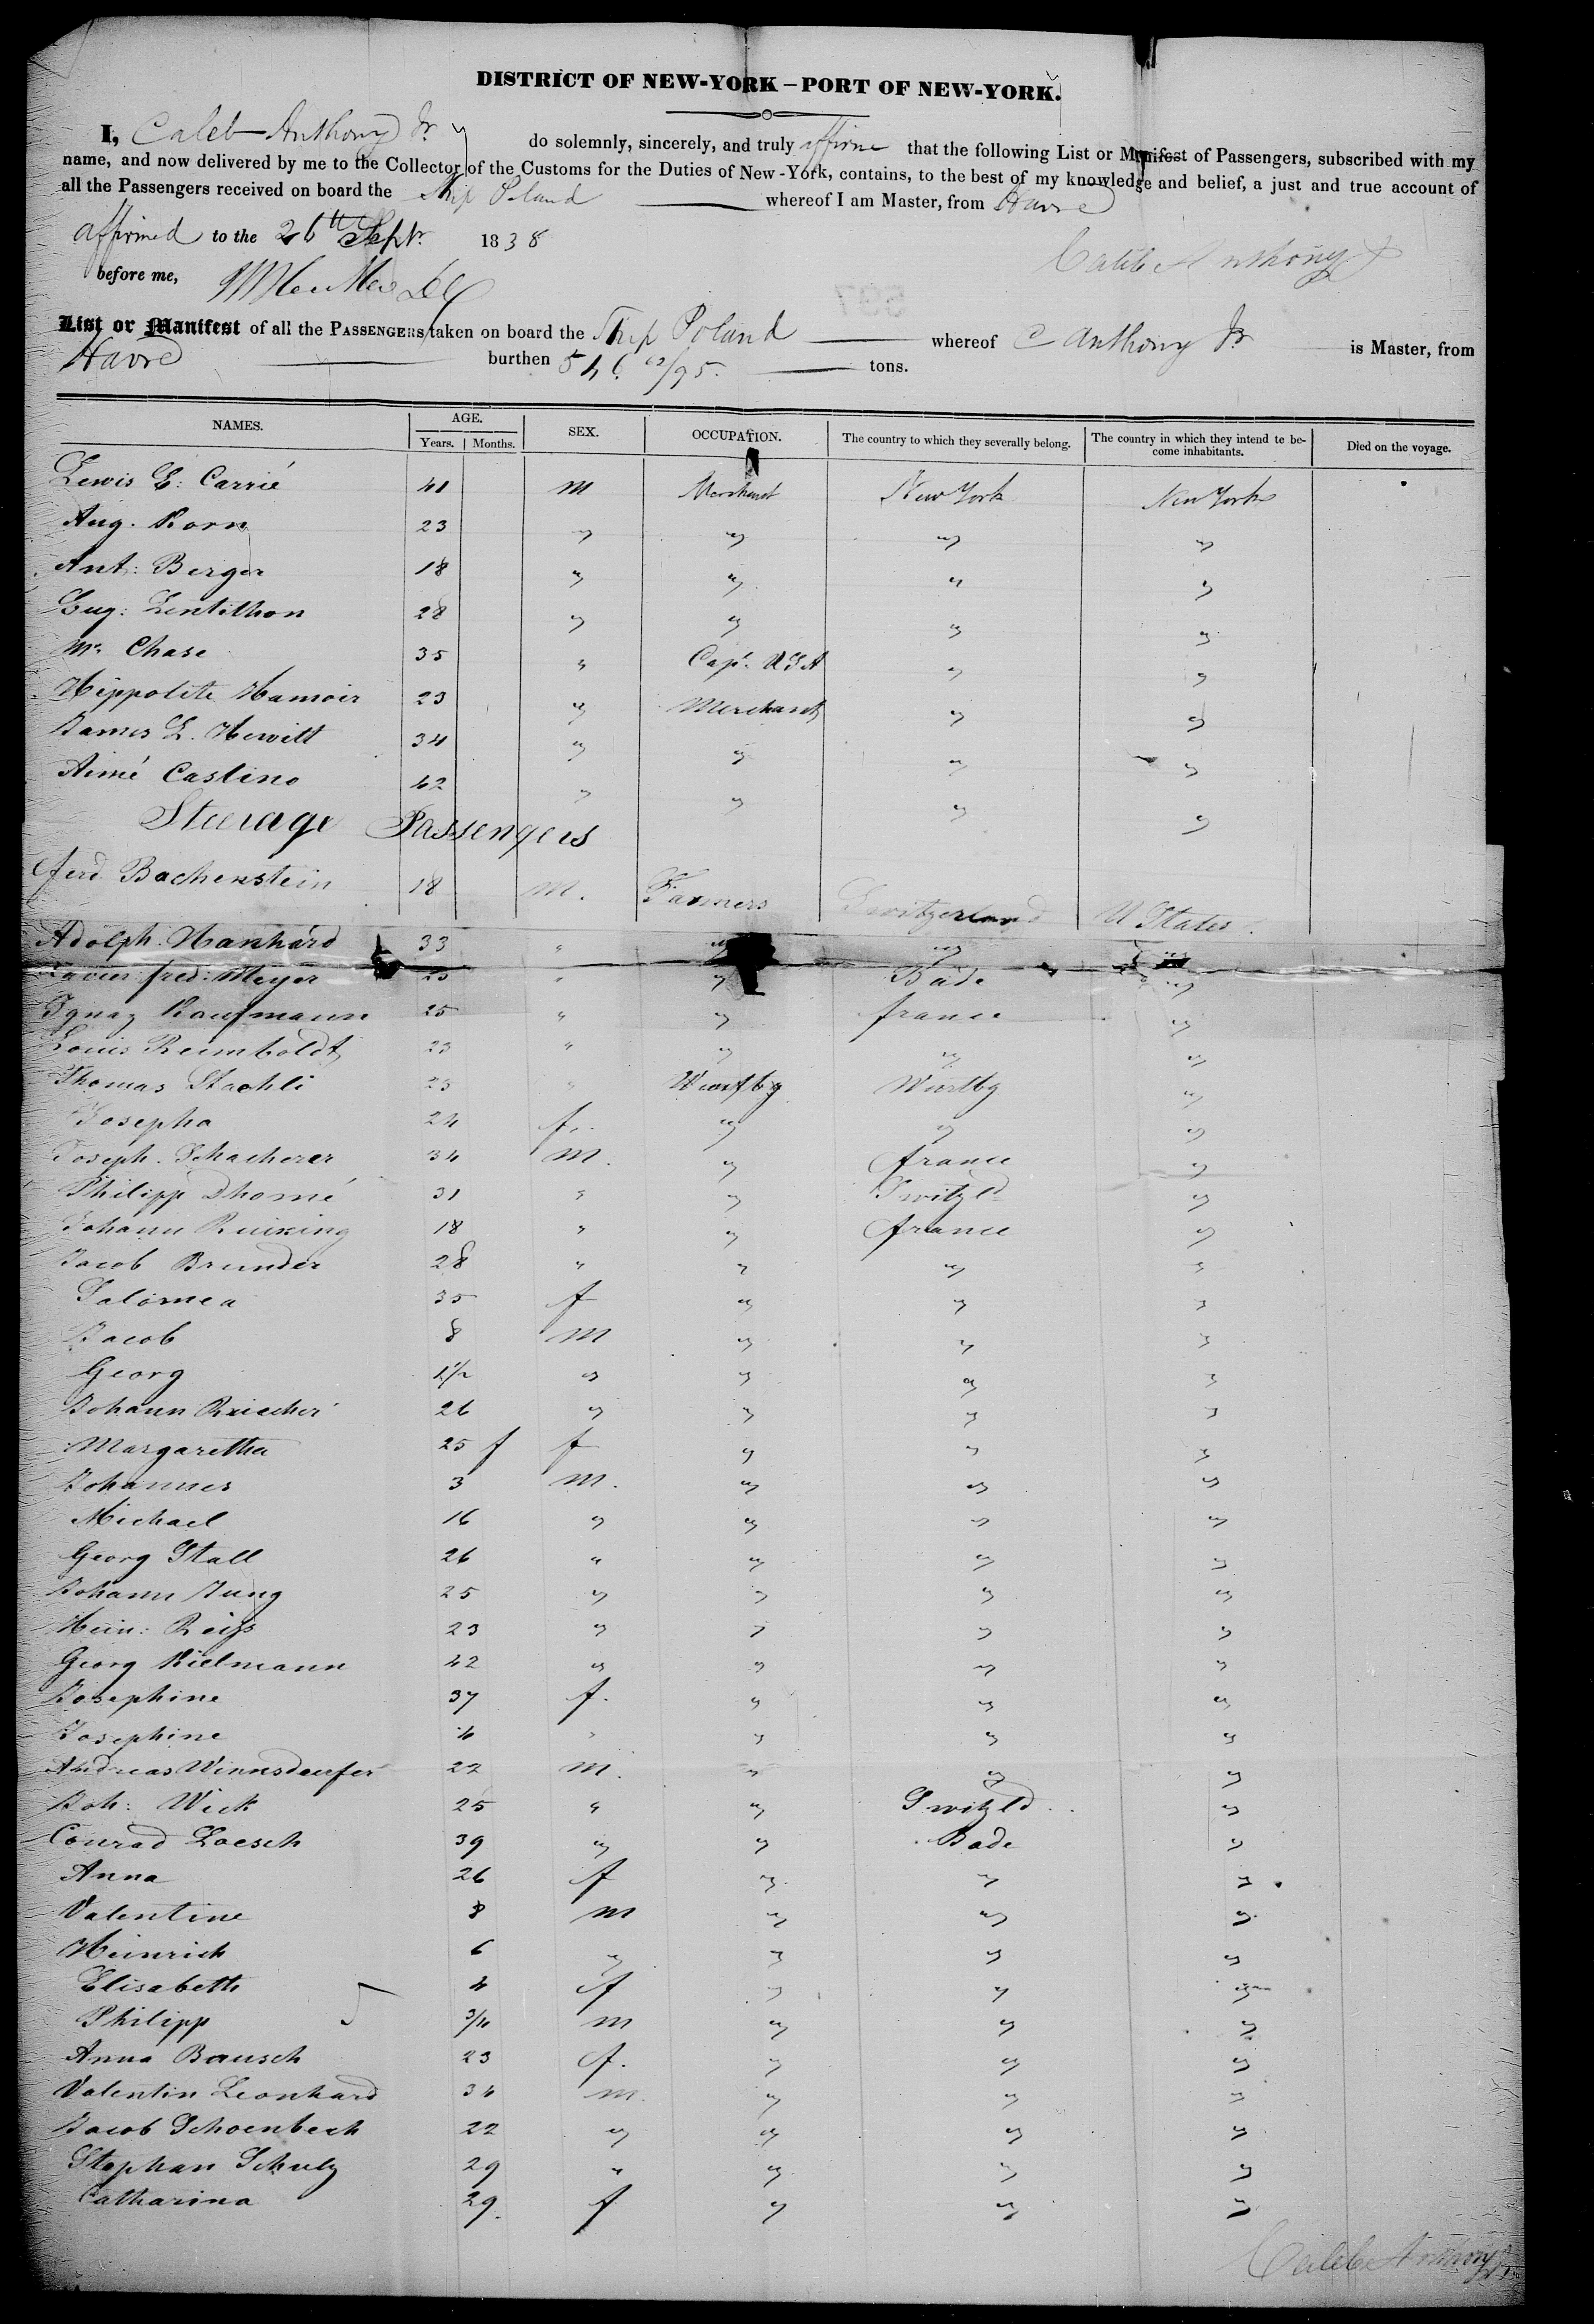 DISTRICT OF NEW-YORK – PORT OF NEW-YORK.
I, Caleb Anthony Jr. do solemnly, sincerely, and truly affirm that the following List or Manifest of Passengers, subscribed with my
name, and now delivered by me to the Collector of the Customs for the Duties of New-York, contains, to the best of my knowledge and belief, a just and true account of
all the Passengers received on board the Ship Poland whereof I am Master, from Havre
affirmed to the 26th Sept. 1838 Caleb Anthony Jr
before me,
List or Manifest of all the PASSENGERS taken on board the Ship Poland whereof C Anthony Jr. is Master, from
Havre burthen 546 /95. tons.
NAMES. AGE. Years. Months. SEX. OCCUPATION. The country to which they severally belong. The country in which they intend te become inhabitants. Died on the voyage.
Lewis E: Carrié 41 M Merchant New York New York
Aug. Korn 23 " " " "
Ant: Berger 18 " " " "
Eug: Lentilhon 28 " " " "
Mr. Chase 35 " Capt. U S A " "
Hippolite Hamoir 23 " Merchant " "
James L. Hewitt 34 " " " "
Aimé Castino 42 " " " "
Steerage Passengers
ferd Bachenstein 18 M. Farmers Switzerland U States.
Adolph. Hanhard 33 " " " "
Xavier fred: Meyer 25 " " Bade "
Ignaz Kaufmann 25 " " france "
Louis Reimboldt 23 " " " "
Thomas Staehli 23 " Wurtbg Wurtbg "
Josepha 24 f. " " "
Joseph. Schacherer 34 M. " france "
Philipp Dhomé 31 " " Switzld "
Johann Ruixing 18 " " france "
Jacob Brunder 28 " " " "
Salomea 35 f " " "
Jacob 8 M " " "
Georg 1 1/2 " " " "
Johann 26 " " " "
Margaretha 25 f f " " "
Johannes 3 M. " " "
Michael 16 " " " "
Georg Stall 26 " " " "
Johann Jung 25 " " " "
Hein: Reiss 23 " " " "
Georg Kielmann 42 " " " "
Josephine 37 f. " " "
Josephine 4 " " " "
Andreas 22 M. " " "
Joh: Wick 25 " " Switzld. "
Conrad Loesch 39 " " Bade "
Anna 26 f " " "
Valentine 8 M " " "
Heinrich 6 " " " "
Elisabeth 4 f " " "
Philipp 3/4 M " " "
Anna Bausch 23 f. " " "
Valentin Leonhard 34 M. " " "
Jacob Schoenbech 22 " " " "
Stephan Schulz 29 " " " "
Catharina 29. f " " "
Caleb Anthony Jr